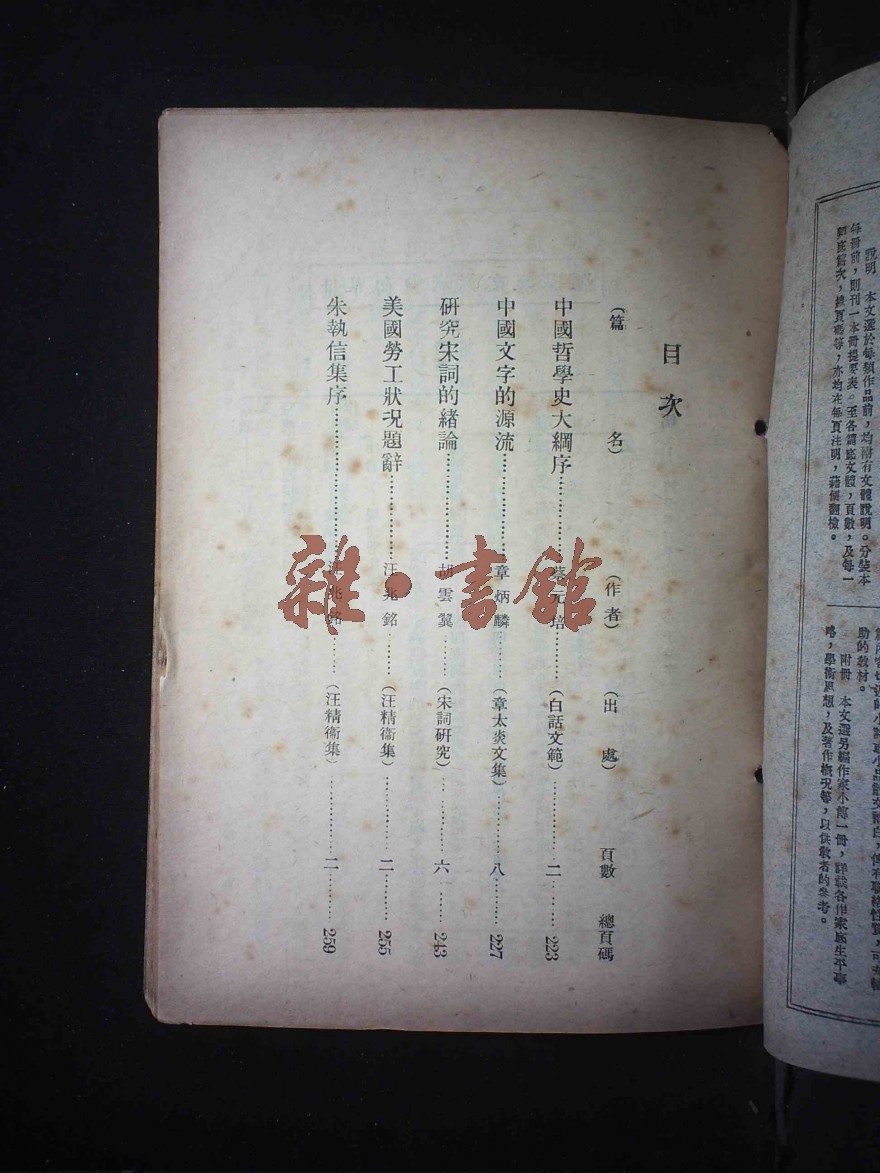 說明　本文選於每類作品前，均附有文體說明。分裝本
每冊前，則刊一本冊提要表。至各篇底文體，頁數，及每一
類底篇次，總頁碼等，亦均在每頁注明，藉便翻檢。
助的教材。
附冊　本文選另編作家小傳一冊，詳載各作家底生平事
略，學術思想，及著作概況等，以供教者的參考。
目次
（篇名）（作者）（出處）頁數　總頁碼
中國哲學史大綱序……蔡元培……（白話文範）……二……223
中國文字的源流……章炳麟……（章太炎文集）……八……227
研究宋詞的緒論……胡雲翼……（宋詞研究）……六……243
美國勞工狀況題辭……汪兆銘……（汪精衞集）……二……255
朱執信集序……汪兆銘……（汪精衞集）……二……259
雜·書館